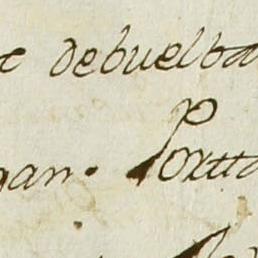 debuelba
gan. Portta